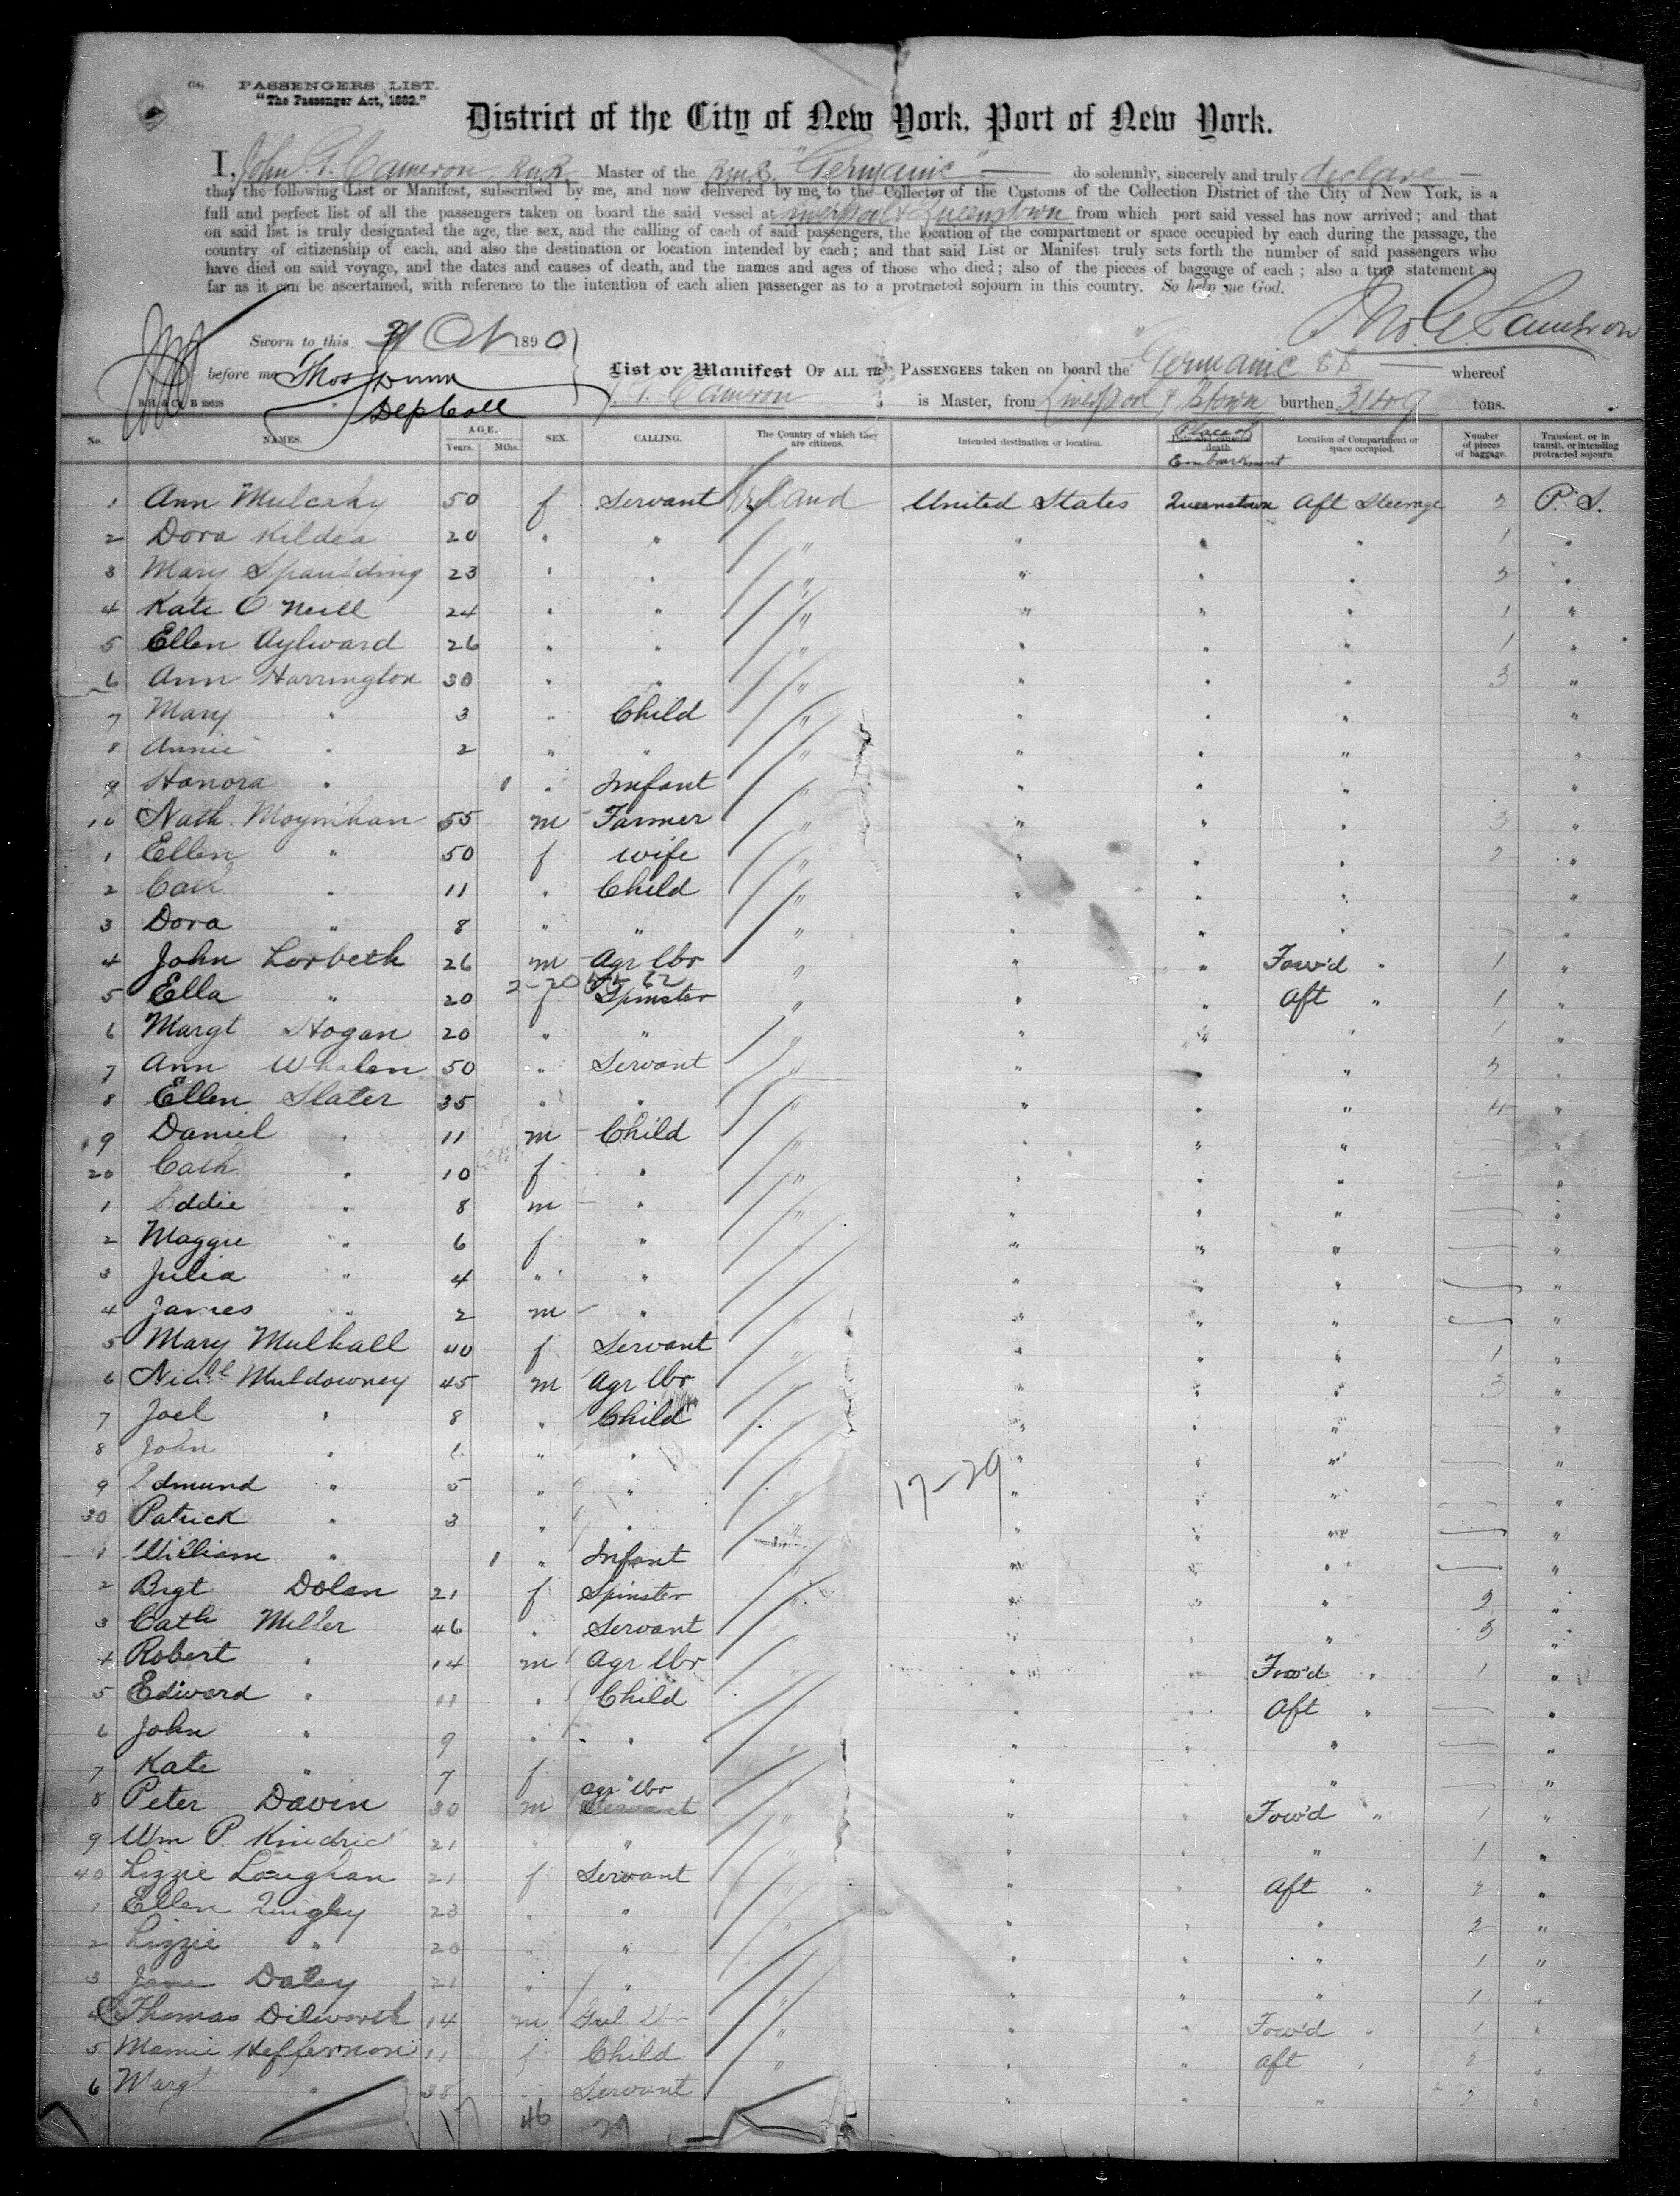 PASSENGERS LIST.
"The Passenger Act, 1882."
District of the City of New York, Port of New York.
I, John G. Cameron, RNR Master of the RMS. "Germanic" do solemnly, sincerely and truly declare
that the following List or Manifest, subscribed by me, and now delivered by me, to the Collector of the Customs of the Collection District of the City of New York, is a
full and perfect list of all the passengers taken on board the said vessel at Liverpool & Queenstown from which port said vessel has now arrived; and that
on said list is truly designated the age, the sex, and the calling of each of said passengers, the location of the compartment or space occupied by each during the passage, the
country of citizenship of each, and also the destination or location intended by each; and that said List or Manifest truly sets forth the number of said passengers who
have died on said voyage, and the dates and causes of death, and the names and ages of those who died; also of the pieces of baggage of each; also a true statement so
far as it can be ascertained, with reference to the intention of each alien passenger as to a protracted sojourn in this country. So help me God.
Jno G Cameron
Sworn to this Oct 1890
before me Thos Dunn
Dep Coll
List or Manifest OF ALL THE PASSENGERS taken on board the "Germanic SS whereof
G. Cameron is Master, from Liverpool & Qtown burthen 3149 tons.
No. NAMES. AGE. Years. Mths. SEX. CALLING. The Country of which they are citizens. Intended destination or location. Place of Embarkment Date and cause of death. Location of Compartment or space occupied. Number of pieces of baggage. Transient, or in transit, or intending protracted sojourn
1 Ann Mulcahy 50 f Servant Ireland United States Queenstown Aft Steerage 2 P. S.
2 Dora Kildea 20 " " " " " " 1 "
3 Mary Spaulding 23 " " " " " " 2 "
4 Kate O'Neill 24 " " " " " " 1 "
5 Ellen Aylward 26 " " " " " " 1 "
6 Ann Harrington 30 " " " " " " 3 "
7 Mary " 3 " Child " " " " "
8 Annie " 2 " " " " " " "
9 Honora " 1 " Infant " " " " "
10 Nath. Moynihan 55 m Farmer " " " " 3 "
1 Ellen " 50 f wife " " " " 2 "
2 Cath " 11 " Child " " " " — "
3 Dora " 8 " " " " " " — "
4 John Lorbeth 26 m Agr lbr " " " Fow'd " 1 "
5 Ella " 20 f Spinster " " " Aft " 1 "
6 Margt Hogan 20 " " " " " " 1 "
7 Ann Whalen 50 " Servant " " " " "
8 Ellen Slater 35 " " " " " " 4 "
19 Daniel " 11 m Child " " " " — "
20 Cath " 10 f " " " " " — "
1 Eddie " 8 m " " " " " — "
2 Maggie " 6 f " " " " " — "
3 Julia " 4 " " " " " " — "
4 James " 2 m " " " " " — "
5 Mary Mulhall 40 f Servant " " " " 1 "
6 Muldowney 45 m Agr lbr " " " " 3 "
7 Joel " 8 " Child " " " " — "
8 John " 6 " " " " " " — "
9 Edmund " 5 " " " " " " — "
17-29
30 Patrick " 3 " " " " " " — "
1 William " 1 " Infant " " " " — "
2 Brgt Dolan 21 f Spinster " " " " 2 "
3 Cath Miller 46 " Servant " " " " 3 "
4 Robert " 14 m Agr lbr " " " Fow'd " 1 "
5 Edward " 11 " Child " " " Aft " — "
6 John " 9 " " " " " " — "
7 Kate " 7 f " " " " " — "
8 Peter Davin 30 m Agr lbr " " " Fow'd " 1 "
9 Wm P. Kindric 21 " " " " " " 1 "
40 Lizzie Loughan 21 f Servant " " " Aft " 2 "
1 Ellen Quigley 23 " " " " " " 2 "
2 Lizzie " 20 " " " " " " 1 "
3 Jane Daley 21 " " " " " " 1 "
4 Thomas Dilworth 14 m " " " Fow'd " 1 "
5 Mamie Heffernon 11 f Child " " " Aft " 2 "
6 Margt " 38 " Servant " " " " 2 "
17 46 29